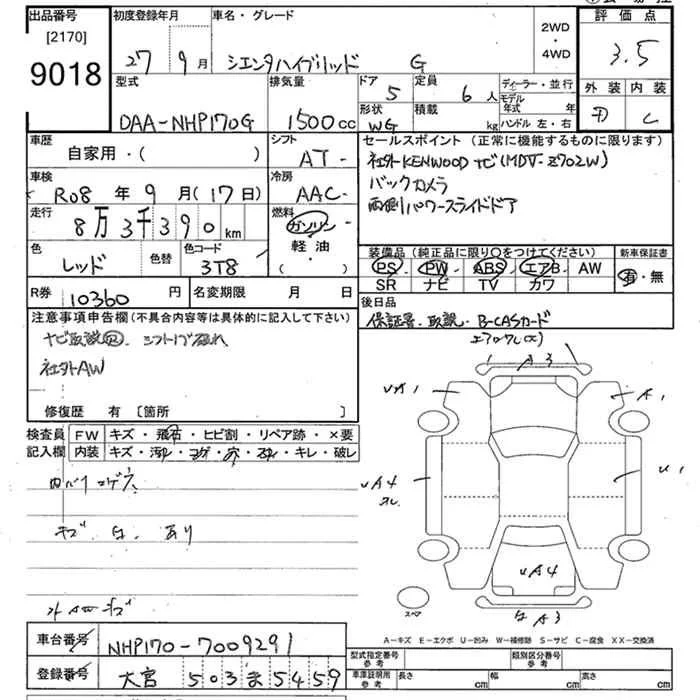 出品番号
[2170]
9018
初度登録年月
27 9月
車名・グレード
シエンタハイブリッド G
2WD
・
4WD
評価点
3.5
外装 内装
D C
型式
DAA-NHP170G
排気量
1500cc
ドア 5
形状 WG
定員 6人
積載 kg
ディーラー・並行
モデル年式 年
ハンドル 左・右
車歴
自家用・( )
シフト
AT-
車検
R08年 9月(17日)
冷房
AAC-
走行
8万3千390km
燃料
ガソリン
軽油・
( ・ )
色
レッド
色替
色コード
3T8
セールスポイント(正常に機能するものに限ります)
社外KENWOODナビ(MDV-Z702W)
バックカメラ
両側パワースライドドア
装備品(純正品に限り○をつけてください)
新車保証書
PS PW ABS エアB AW
SR ナビ TV カワ
有・無
R券 10360円
名変期限 月 日
後日品
保証書・取説・B-CASカード
注意事項申告欄(不具合内容等は具体的に記入して下さい)
ナビ取説 シフトノブ破れ
社外AW
修復歴 有〔箇所 〕
検査員記入欄
FW キズ・飛石・ヒビ割・リペア跡・×要
内装 キズ・汚れ・コゲ・穴・スレ・キレ・破レ
内バリコゲ穴
キズ 白 あり
外AWキズ
A3
UA1
A1
UA4
スレ
U1
UA4
スペア
A3
A-キズ E-エクボ U-凹み W-補修跡 S-サビ C-腐食 XX-交換済
車台番号
NHP170-7009291
登録番号
大宮 503 ま 5459
型式指定番号
参考
類別区分番号
参考
車庫証明用
参考
長さ cm
幅 cm
高さ cm